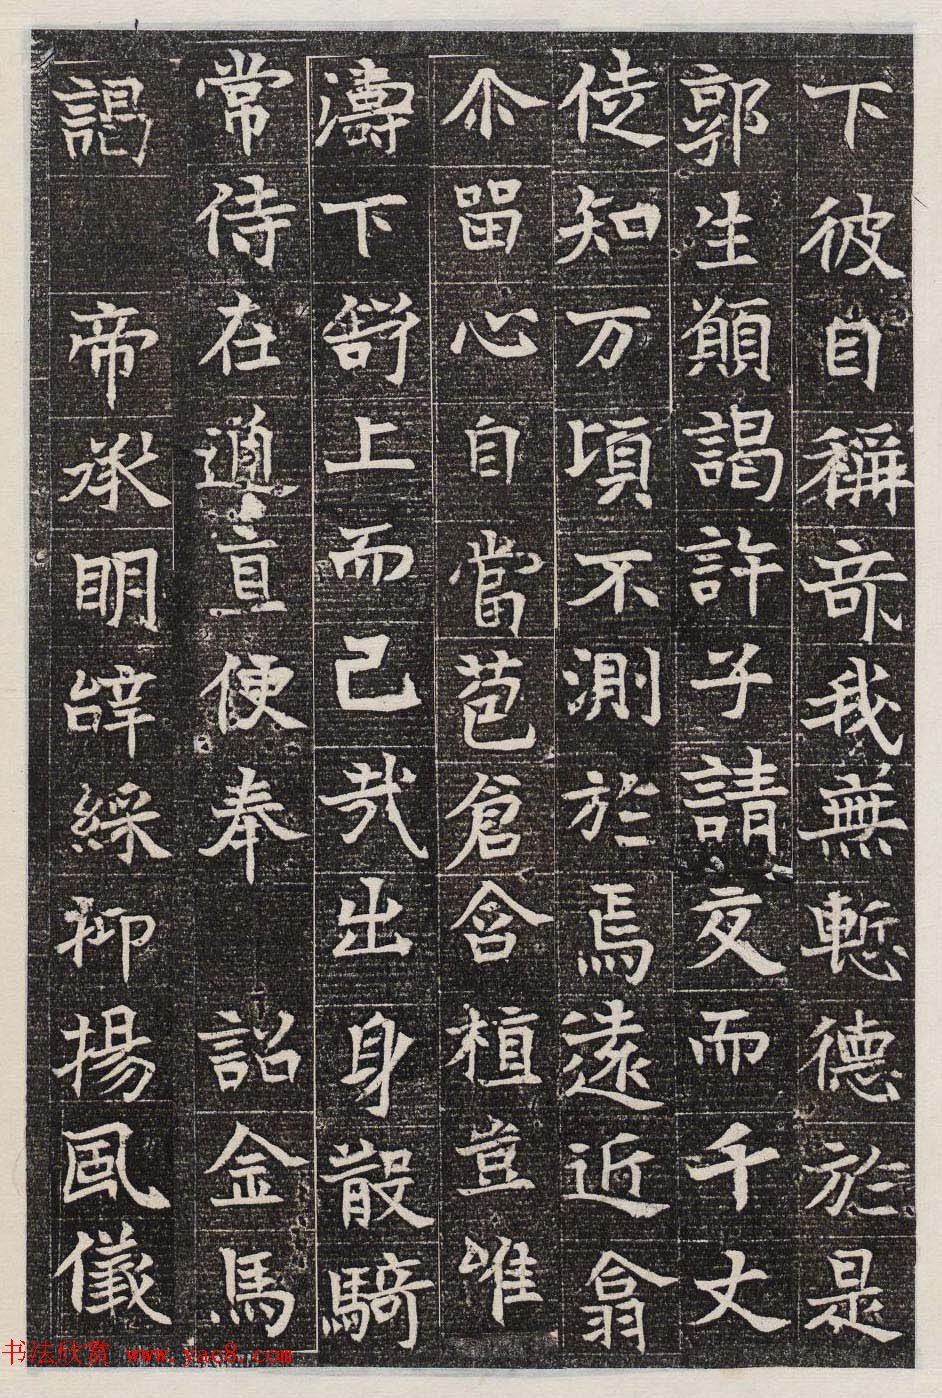 下彼自稱奇我無慙德於是
郭生願謁許子請交而千丈
徒知万頃不測於焉遠近翕
尒留心自當苞倉含植豈唯
濤下上而已哉出身散騎
常侍在通直便奉 詔金馬
謁 帝承明辭綵抑揚風儀
书法欣赏 www.yac8.com